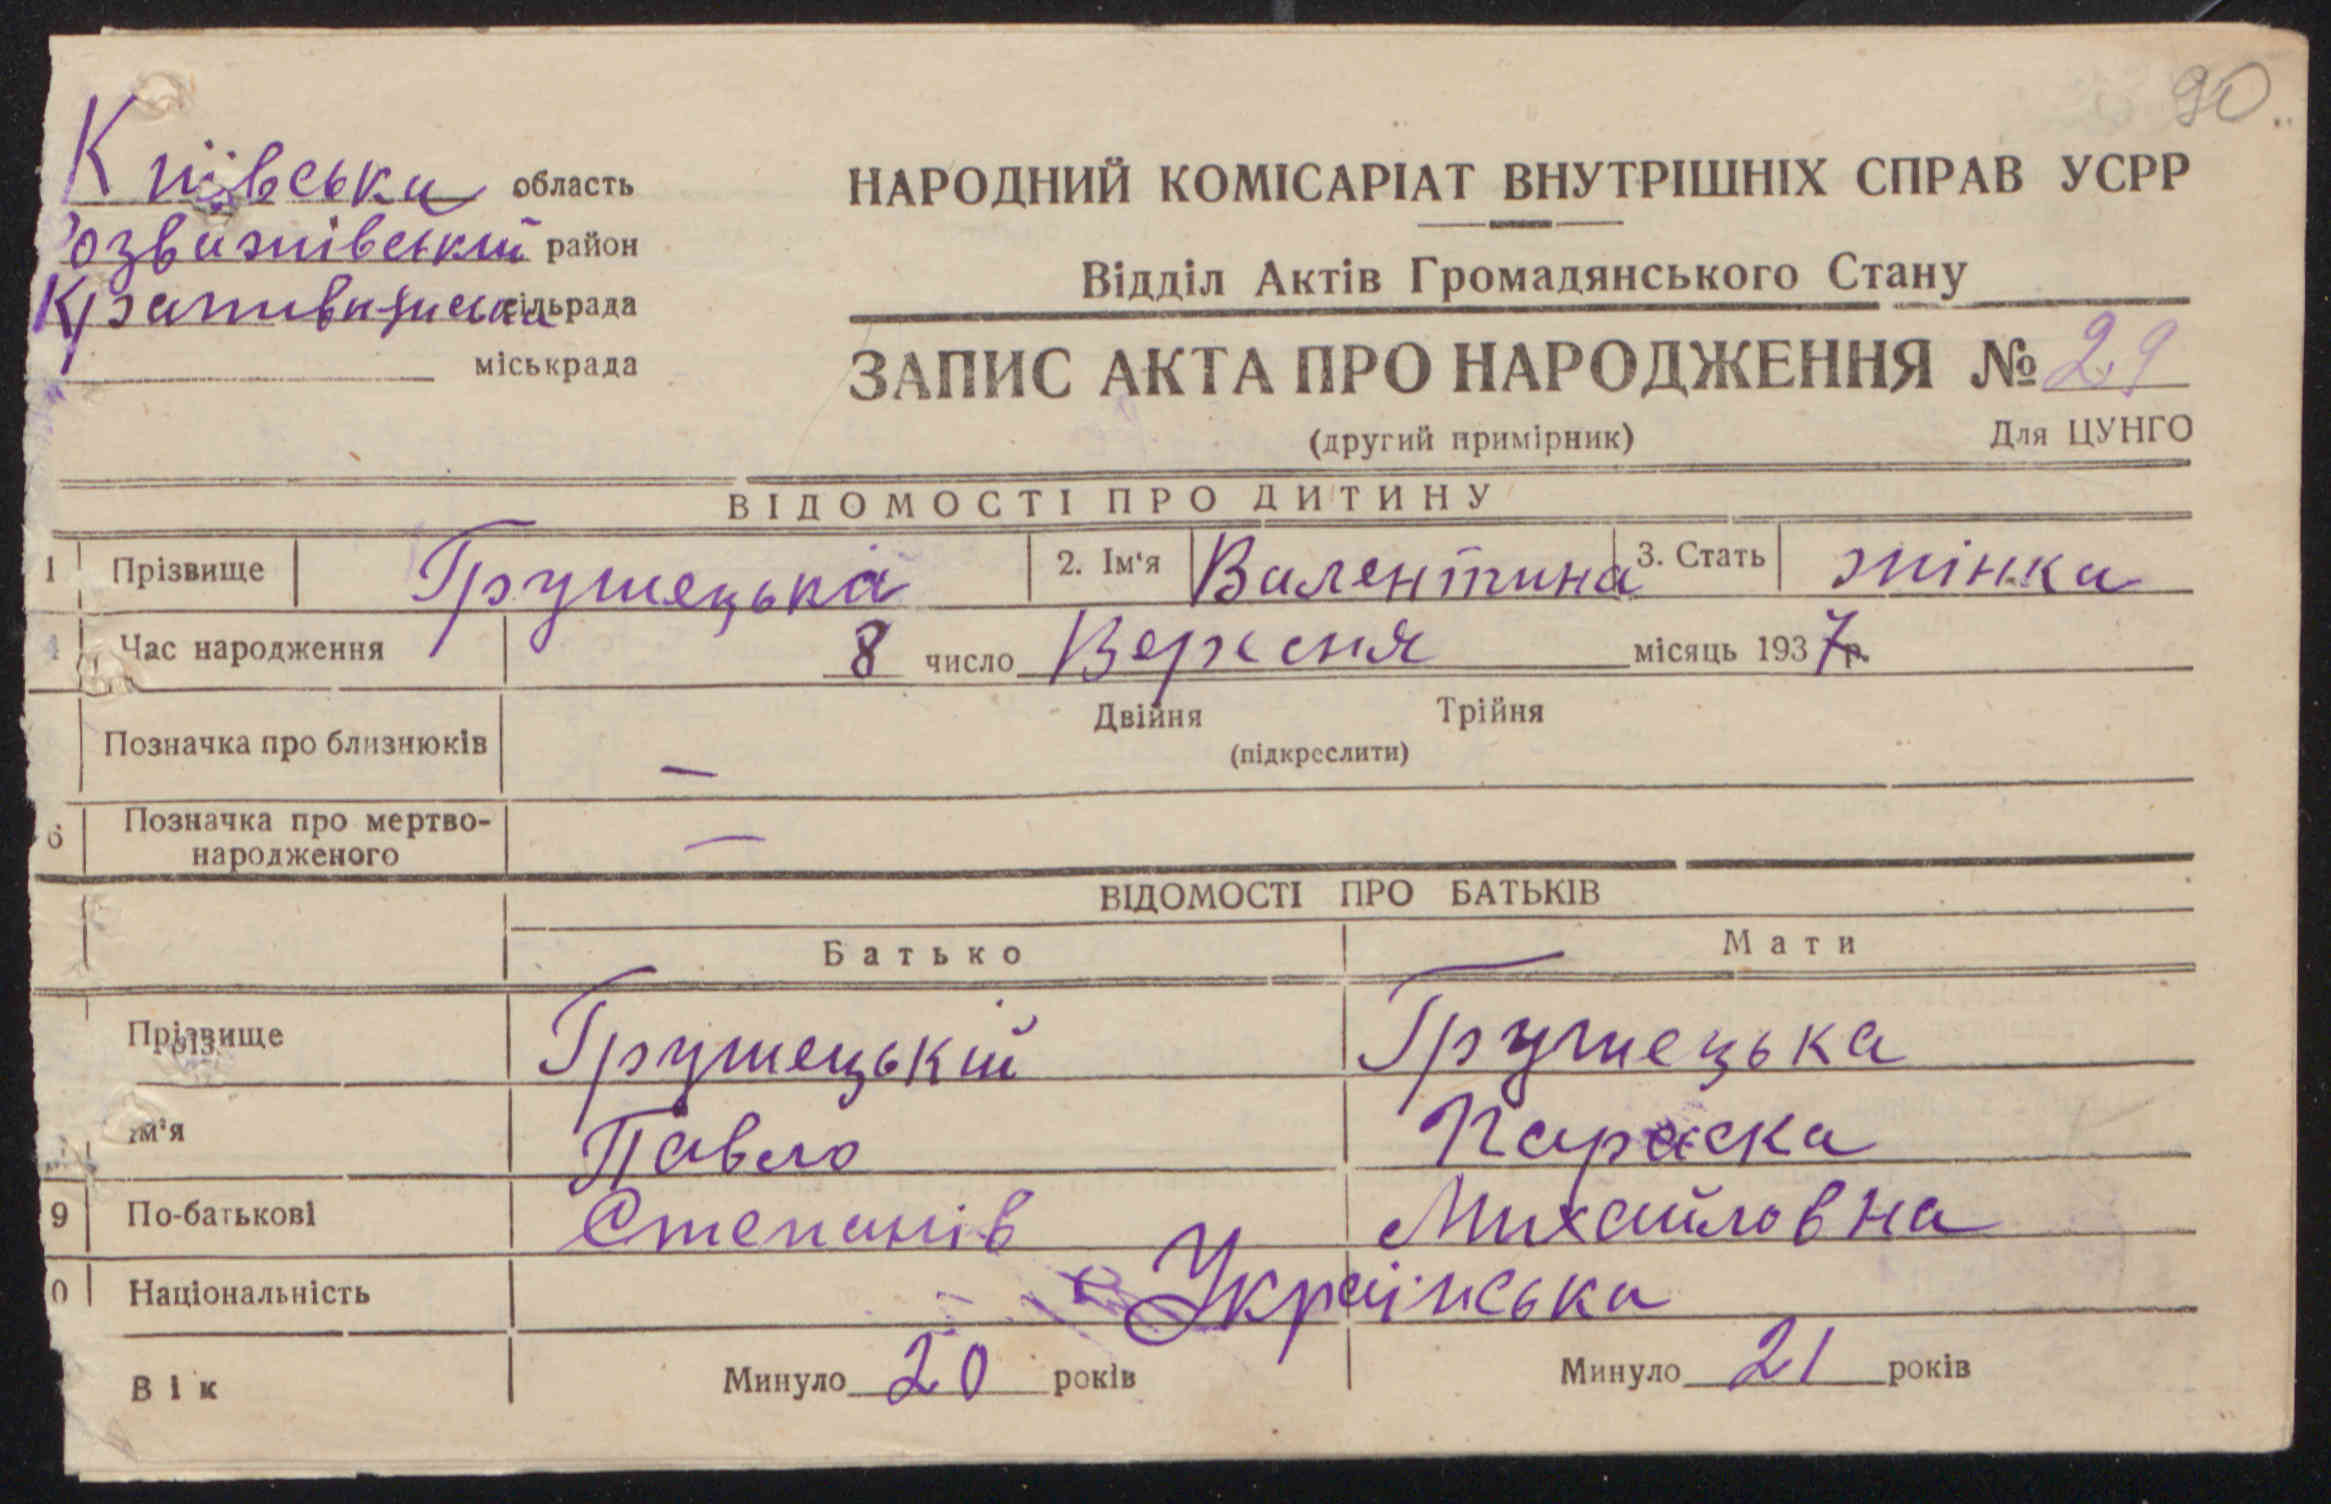 90
Київська область
Розважівський район
сільрада
міськрада
НАРОДНИЙ КОМІСАРІАТ ВНУТРІШНІХ СПРАВ УСРР
Відділ Актів Громадянського Стану
ЗАПИС АКТА ПРО НАРОДЖЕННЯ № 29
(другий примірник) Для ЦУНГО
ВІДОМОСТІ ПРО ДИТИНУ
1 Прізвище Грушецька 2. Ім'я Валентина 3. Стать жінка
4 Час народження 8 число Вересня місяць 1937 р.
Позначка про близнюків — Двійня Трійня
(підкреслити)
6 Позначка про мертво-
народженого —
ВІДОМОСТІ ПРО БАТЬКІВ
Батько Мати
Прізвище Грушецький Грушецька
Ім'я Павло Параска
9 По-батькові Степанів Михайловна
0 Національність Українська
Вік Минуло 20 років Минуло 21 років